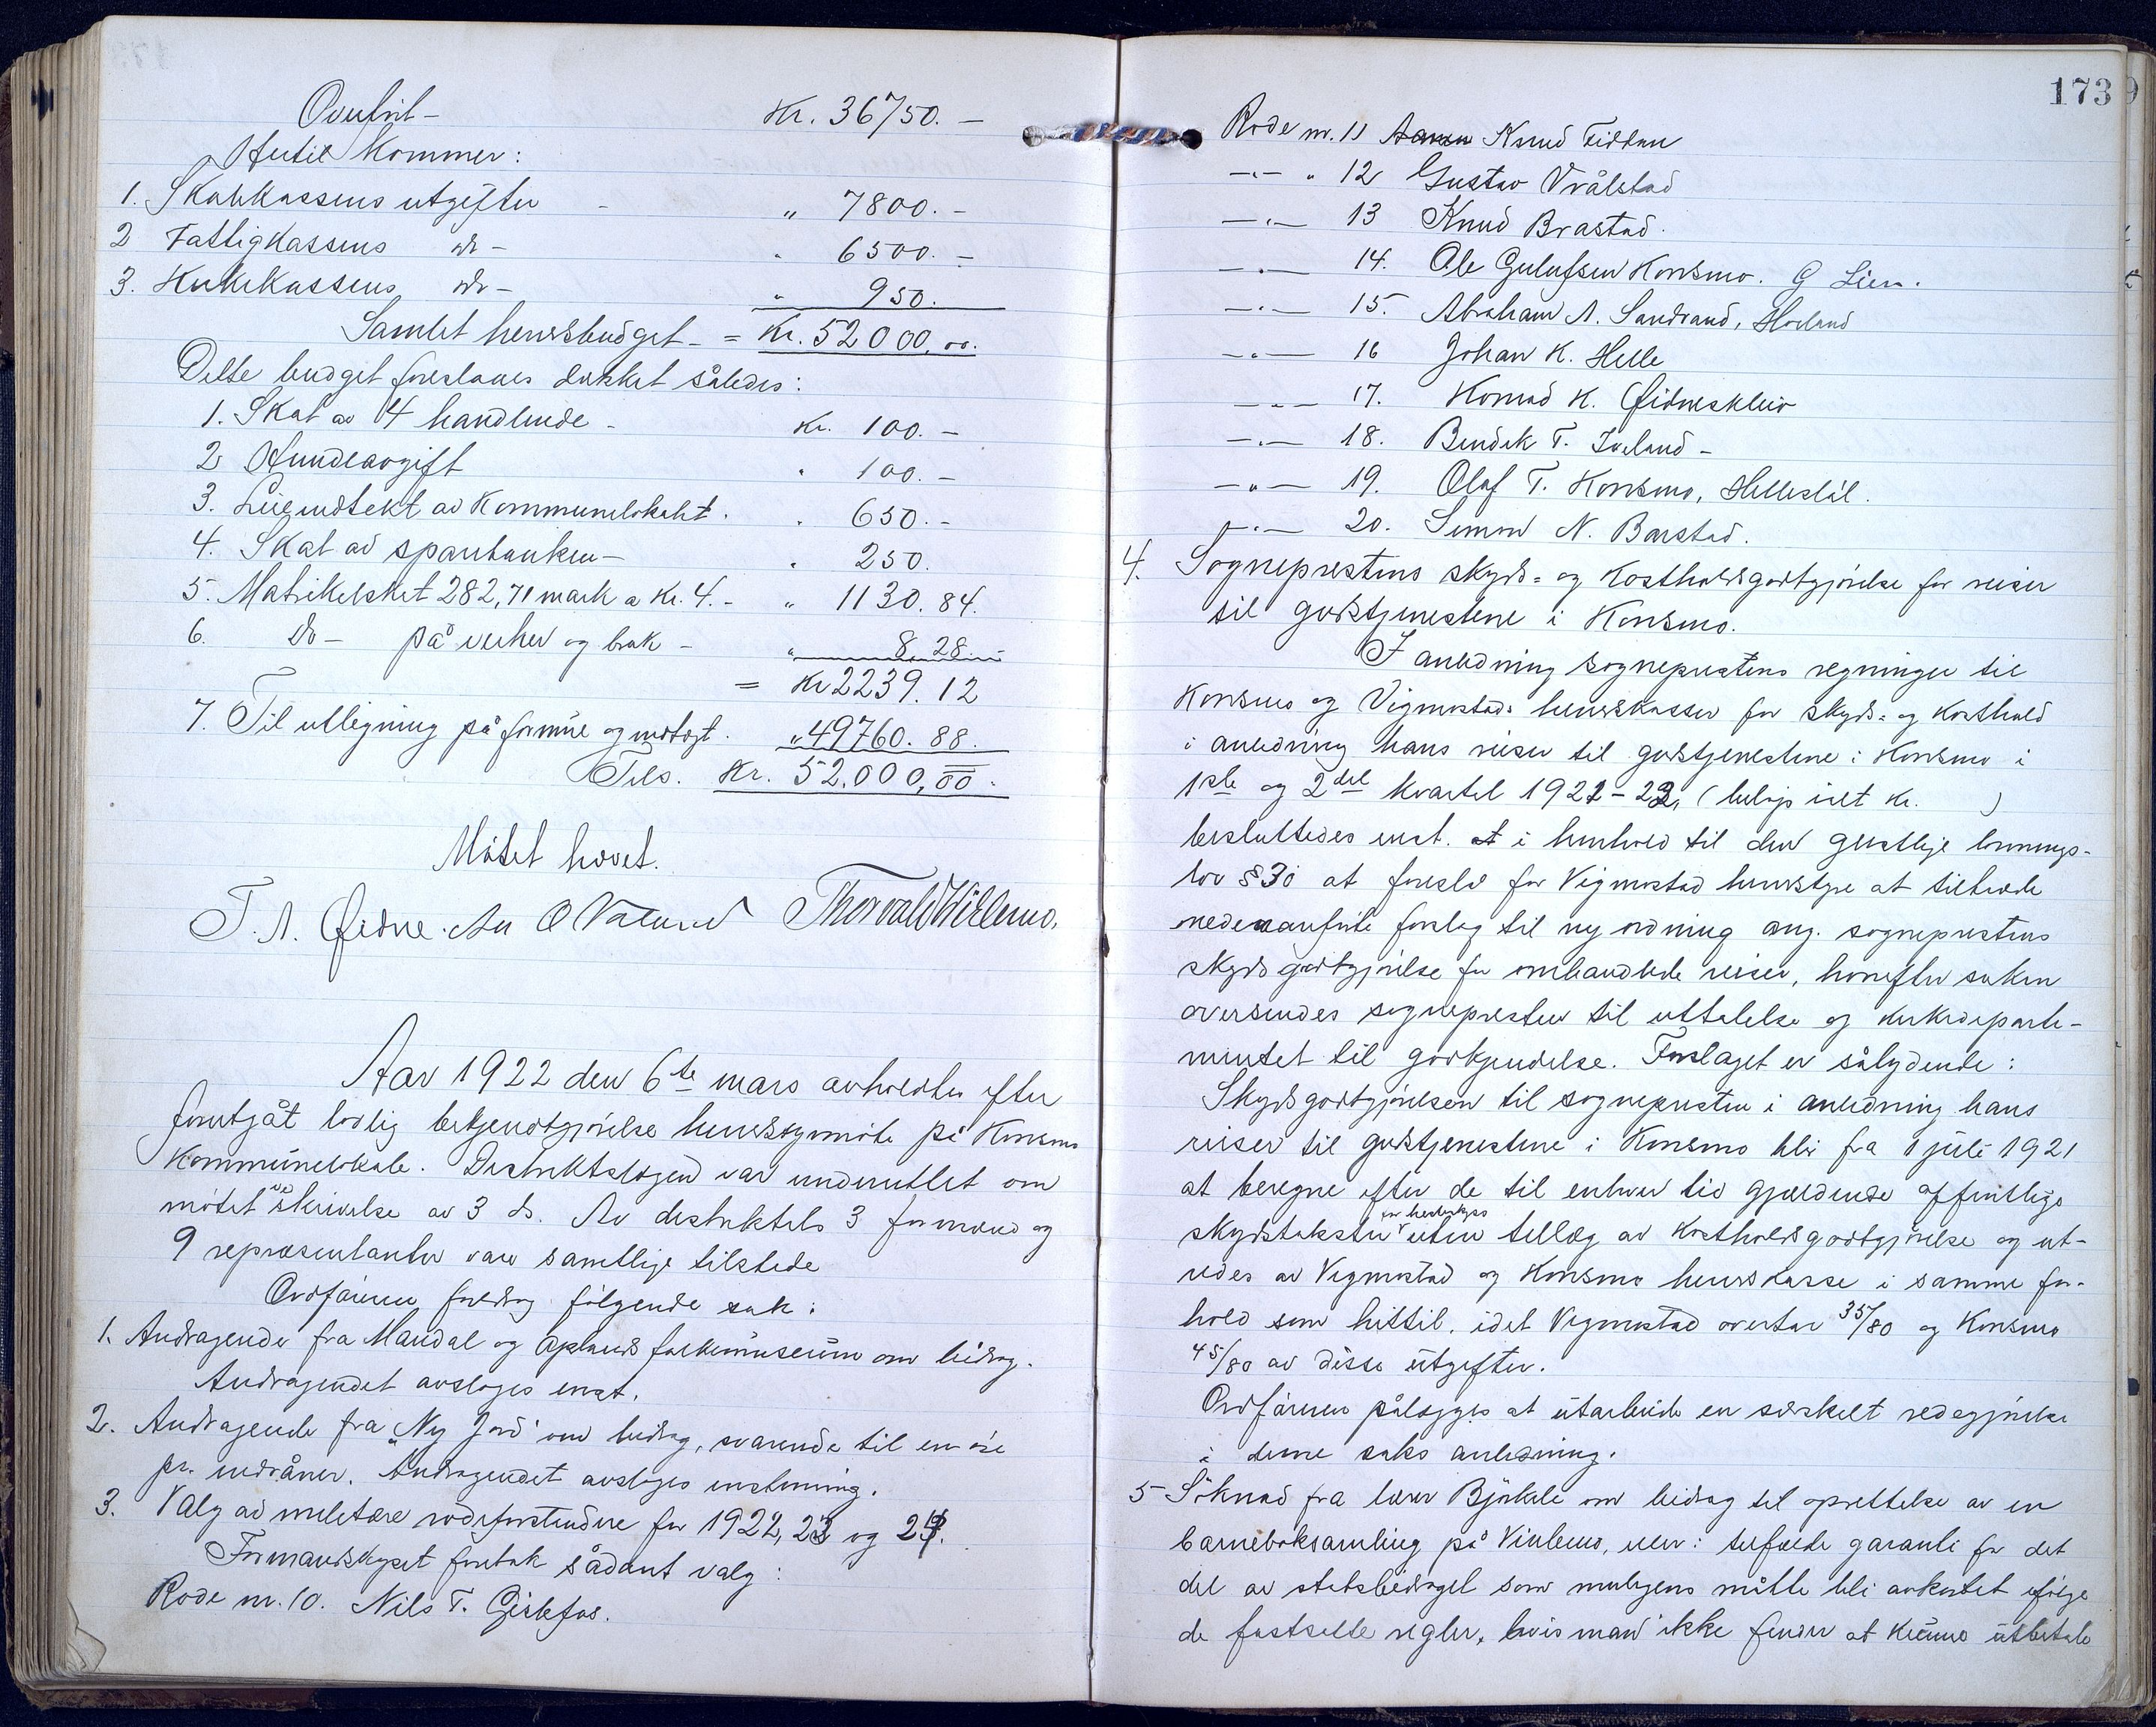 Overført - Kr. 36750. -
Hertil kommer:
1. Skolekassens utgifter - " 7800. -
2 Fattigkassens do - " 6500. -
3. Kirkekassens do - " 950.
Samlet herredsbudget - = Kr. 52000,00.
Dette budget foreslaaes dækket således:
1. Skat av 4 handlende - Kr. 100. -
2 Hundeavgift " 100. -
3. Leieindtekt av Kommunelokalet. " 650. -
4. Skat av sparebanken - " 250.
5. Matrikelskat 282,71 mark a Kr. 4. - " 1130. 84.
6. Do - på verker og bruk - " 8. 28. -
= Kr 2239. 12
7. Til utligning på formue og indtægt. " 49760. 88.
Tils. Kr. 52.000,00.
Møtet hævet.
T. A. Øidne. O Valand Thorvald Wirlemo.
Aar 1922 den 6te mars avholdtes efter
foretgåt lovlig bekjendtgjørelse herredsstyremøte på Konsmo
Kommunelokale. Distriktsfogen var underrettet om
møtet ved skrivelse av 3 ds. Av distriktets 3 formænd og
9 repræsentanter vare samtlige tilstede
Ordføreren foredrog følgende sak:
1. Andragende fra Mandal og Oplands folkemuseum om bidrag.
Andragendet avsloges enst.
2. Andragende fra "Ny Jord" om bidrag, svarende til en øre
pr. indvåner. Andragendet avsloges enstemmig.
3. Valg av militære rodeforstandere for 1922, 23 og 24.
Formandskapet foretok sådant valg:
Rode nr. 10. Nils T. Gislefos.
173
Rode nr. 11 Knud Fidtan
-"- " 12 Gustav Vrålstad
-"- 13 Knud Brastad.
-"- 14. Ole Gulufsen Konsmo. G Lien.
-"- 15. Abraham A. Sandrand, Høiland
-"- 16 Johan K. Helle
-"- 17. Konrad K. Øidneskleiv
-"- 18. Bendik T. Iveland -
-"- 19. Olaf T. Konsmo, Hellesløl.
-"- 20. Simon N. Barstad.
4. Sogneprestens skyds- og Kostholdsgodtgjørelse for reiser
til gudstjenestene i Konsmo.
I anledning sogneprestens regninger til
Konsmo og Vigmostads herredskasser for skyds- og kosthold
i anledning hans reiser til gudstjenestene i Konsmo i
1ste og 2det kvartal 1921-22, (beløp ialt kr. )
besluttedes enst. at i henhold til den geistlige lønnings-
lov § 30 at foreslå for Vigmostad herredstyre at tiltræde
nedenanførte forslag til ny ordning ang. sogneprestens
skydsgodtgjørelse for omhandlede reiser, hvorefter saken
oversendes sognepresten til uttalelse og kirkedeparte-
mentet til godkjendelse. Forslaget er sålydende:
Skydsgodtgjørelsen til sognepresten i anledning hans
reiser til gudstjenestene i Konsmo blir fra 1 juli 1921
at beregne efter de til enhver tid gjældende offentlige
skydstakster for hesteskyss uten tillæg av kostholdsgodtgjørelse og ut-
redes av Vigmostad og Konsmo herredskasse i samme for-
hold som hittil, idet Vigmostad overtar 35/80 og Konsmo
45/80 av disse utgifter.
Ordføreren pålægges at utarbeide en særskilt redegjørelse
i denne saks anledning.
5 Søknad fra lærer Bjørkeli om bidrag til oprettelse av en
barneboksamling på Vinlemo, eller i tilfælde garanti for det
del av statsbidraget som muligens måtte bli avkortet ifølge
de fastsatte regler, hvis man ikke finder at kunne utbetale